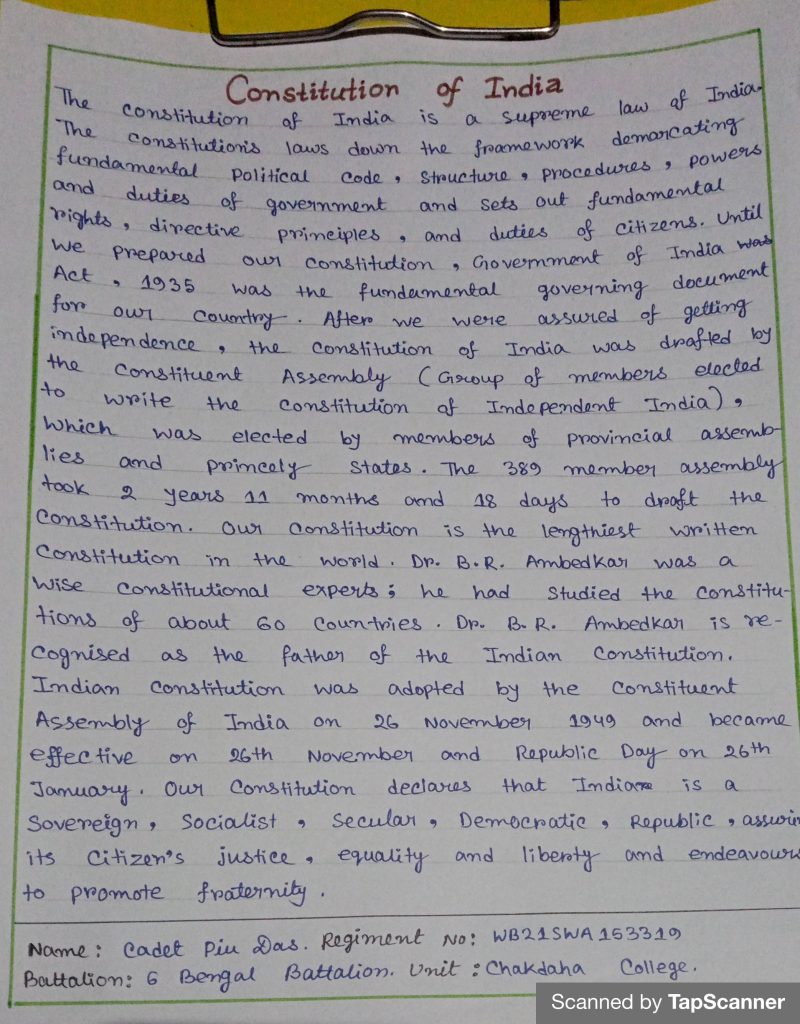 Constitution of India
The constitution of India is a supreme law of India.
The constitution's laws down the framework demarcating
fundamental Political Code, Structure, Procedures, powers
and duties of government and sets out fundamental
rights, directive principles, and duties of citizens. Until
we prepared our constitution, Government of India was
Act, 1935 was the fundamental governing document
for our country. After we were assured of getting
independence, the constitution of India was drafted by
the Constituent Assembly (Group of members elected
to write the constitution of Independent India),
which was elected by members of provincial assemb-
lies and princely states. The 389 member assembly
took 2 years 11 months and 18 days to draft the
Constitution. Our constitution is the lengthiest written
Constitution in the world. Dr. B.R. Ambedkar was a
wise constitutional experts; he had studied the constitu-
tions of about 60 countries. Dr. B.R. Ambedkar is re-
cognised as the father of the Indian Constitution.
Indian Constitution was adopted by the Constituent
Assembly of India on 26 November 1949 and became
effective on 26th November and Republic Day on 26th
January. Our Constitution declares that India is a
Sovereign, Socialist, Secular, Democratic, Republic, assurin
its Citizen's justice, equality and liberty and endeavours
to promote fraternity.
Name: Cadet Piu Das. Regiment No: WB21SWA153319
Battalion: 6 Bengal Battalion. Unit: Chakdaha College.
Scanned by TapScanner